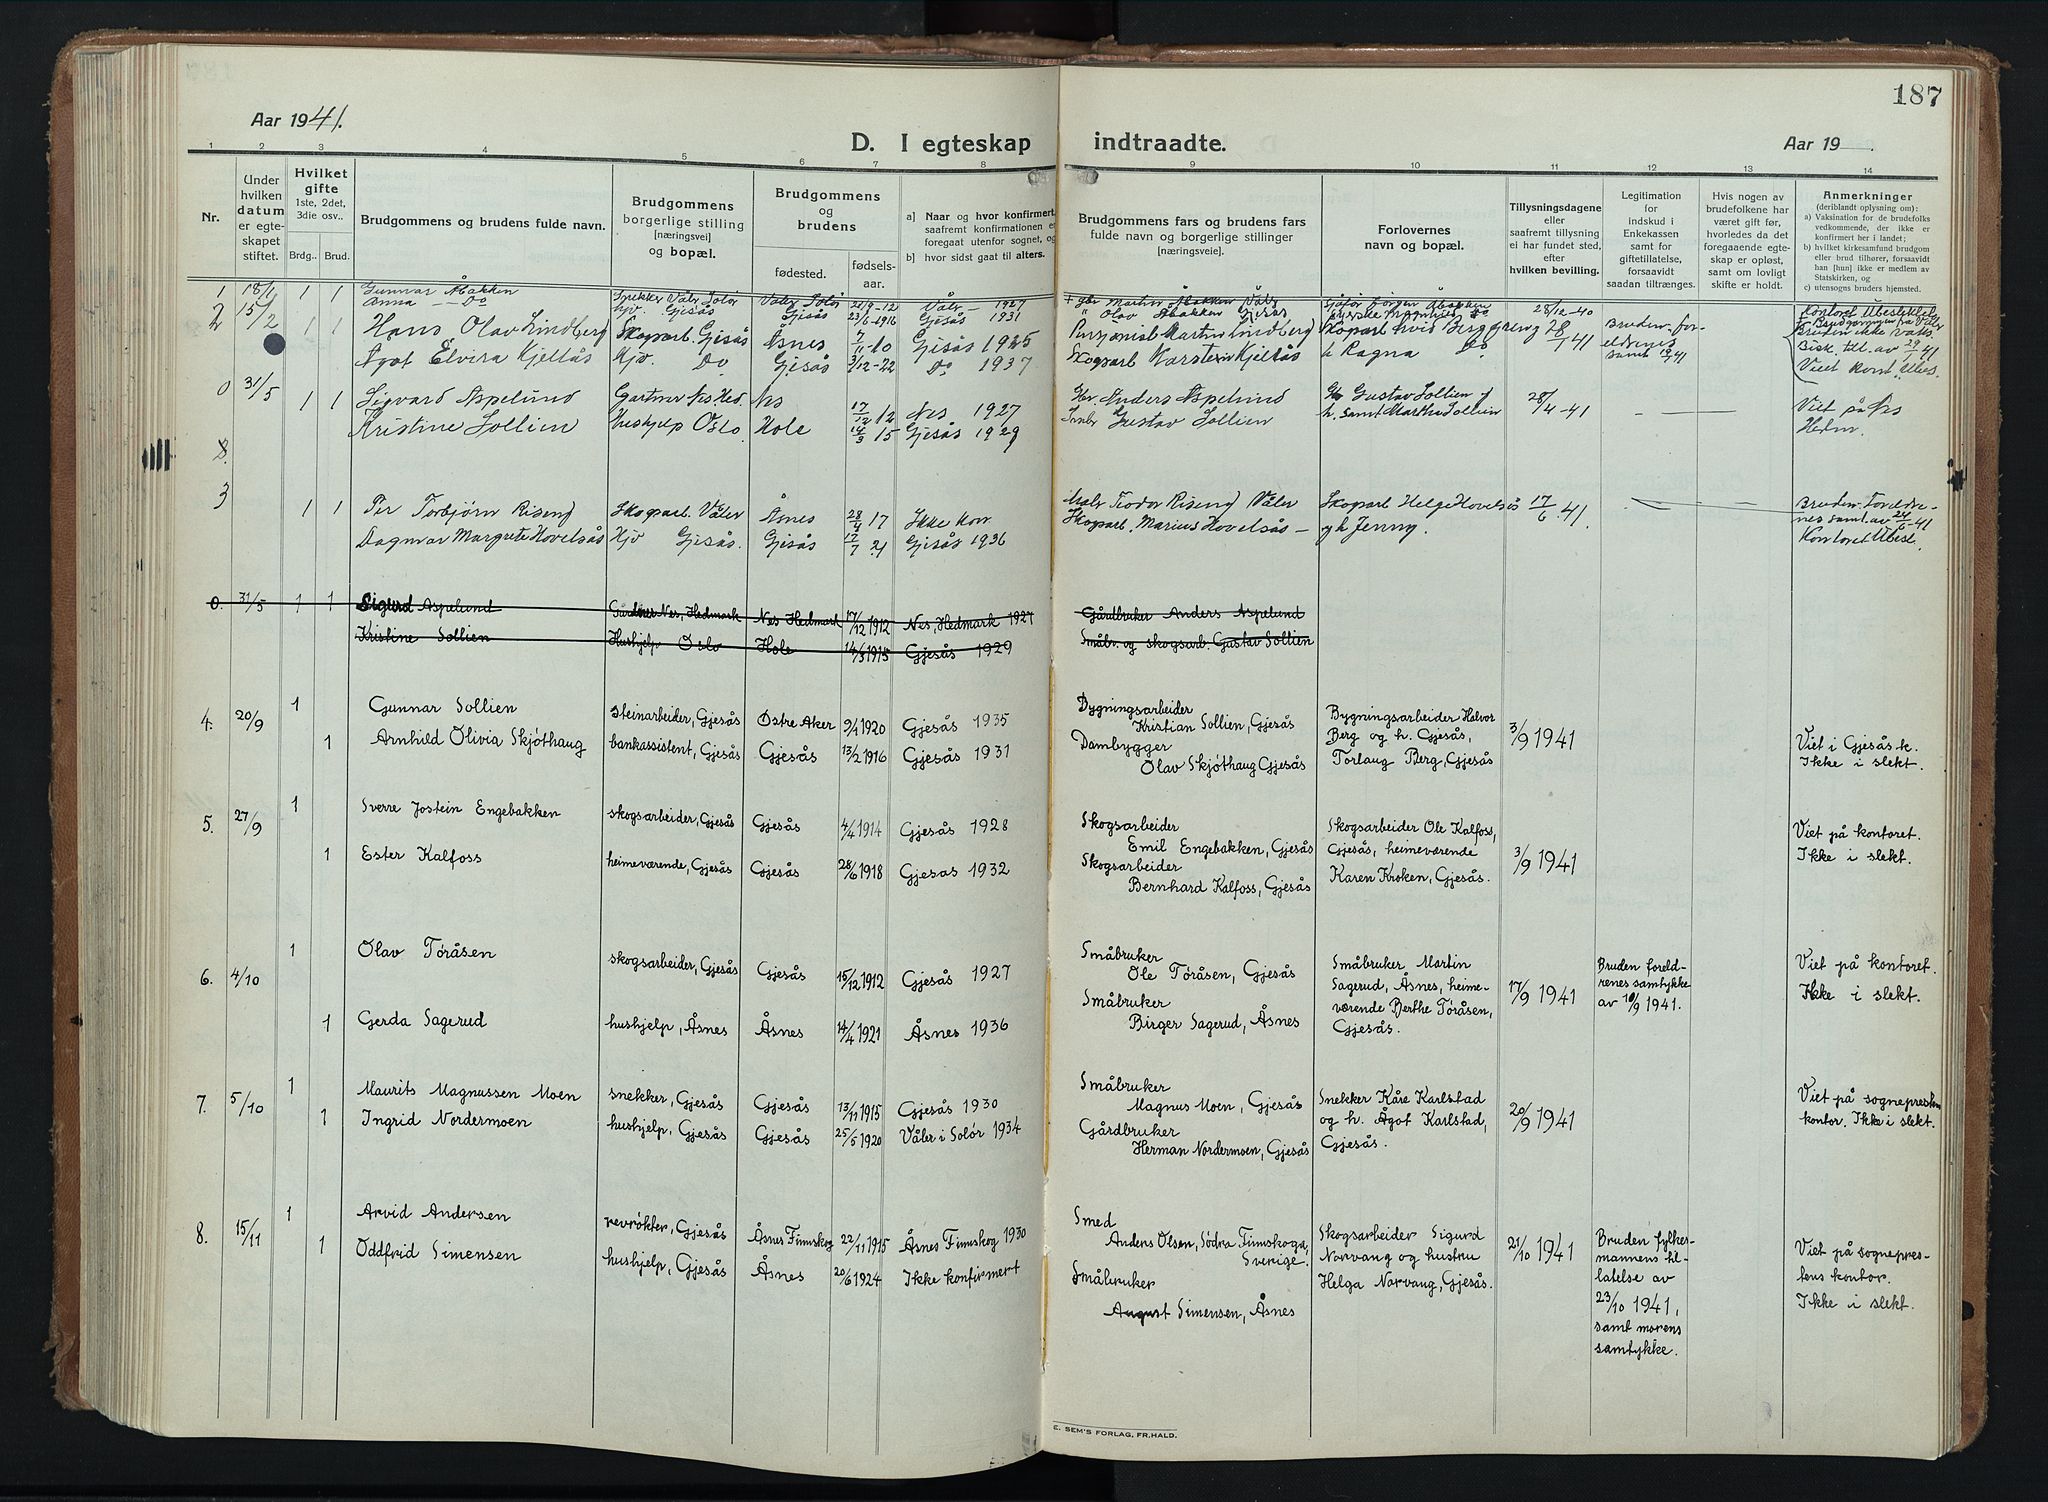 187
Aar 1941.
D. I egteskap indtraadte.
Aar 19
1 2 3 4 5 6 7 8 9 10 11 12 13 14
Nr.
Under hvilken datum er egteskapet stiftet.
Hvilket gifte
1ste, 2det, 3die osv..
Brdg.. Brud.
Brudgommens og brudens fulde navn.
Brudgommens borgerlige stilling [næringsvei] og bopæl.
Brudgommens og brudens
fødested.
fødsels-aar.
a) Naar og hvor konfirmert, saafremt konfirmationen er foregaat utenfor sognet, og
b) hvor sidst gaat til alters.
Brudgommens fars og brudens fars fulde navn og borgerlige stillinger [næringsveie].
Forlovernes navn og bopæl.
Tillysningsdagene eller saafremt tillysning ei har fundet sted, efter hvilken bevilling.
Legitimation for indskud i Enkekassen samt for giftetillatelse, forsaavidt saadan tiltrænges.
Hvis nogen av brudefolkene har været gift før, hvorledes da det foregaaende egteskap er opløst, samt om lovligt skifte er holdt.
Anmerkninger
(deriblandt oplysning om):
a) Vaksination for de brudefolks vedkommende, der ikke er konfirmert her i landet;
b) hvilket kirkesamfund brudgom eller brud tilhører, forsaavidt han [hun] ikke er medlem av Statskirken, og
c) utensogns brudens hjemsted.
1 18/1 1 1 Gunnar Åbakken Snekker Våler Solør Våler Solør 12 Våler 1927 Martin Åbakken Våler 28/12-40
Anna Do Hjv. Gjesås Gjesås 23/6-1916 Gjesås 1931 Olav Åbakken Gjesås
2 15/2 1 1 Hans Olav Lindberg Skogsarb. Gjesås Åsnes 7/11-10 Gjesås 1925 Martin Lindberg Skogsarb. 28/1 41 Bruden foreldrenes samt. 41
Agot Elvira Kjeltås Hjv. Do Gjesås 3/12-22 Do 1937 Skogsarb. Karsten Kjeltås h. Ragna Do Bruden ikke vaks. Bisk. till. av 29/1 41 Viet kont. Ubes.
0 31/5 1 1 Sigvard Aspelund Gartner Nes Hed. Nes 17/12 12 Nes 1927 Gbr. Anders Aspelund Gustav Sollien 28/4-41 Viet på Nes
Kristine Sollien Hushjelp Oslo Hole 14/3 15 Gjesås 1929 Småbr. Gustav Sollien h. samt Marthe Sollien Hedm.
8.
3 1 1 Per Torbjørn Riseng Skogsarb. Våler Åsnes 28/4 17 Ikke kon. Maler Teodor Riseng Våler Skogsarb. Helge Hovelsås 17/6 41. Bruden. Foreldrenes samt. av 24/6-41
Dagmar Margrete Hovelsås Hjv Gjesås. Gjesås 17/7 21 Gjesås 1936 Skogsarb. Marius Hovelsås g h Jenny. Kontoret Ubesl.
0. 31/5 1 1 Sigurd Aspelund Gårdbruker Nes, Hedmark Nes Hedmark 17/12 1912 Nes, Hedmark 1927 Gårdbruker Anders Aspelund
Kristine Sollien Hushjelp Oslo Hole 14/3 1915 Gjesås 1929 Småbr. og skogsarb. Gustav Sollien
4. 20/9 1 Gunnar Sollien steinarbeider, Gjesås Østre Aker 9/1 1920 Gjesås 1935 Bygningsarbeider Kristian Sollien, Gjesås Bygningsarbeider Halvor Berg og h. Gjesås, 3/9 1941 Viet i Gjesås k.
1 Arnhild Olivia Skjøthaug bankassistent, Gjesås Gjesås 13/2 1916 Gjesås 1931 Dambygger Olav Skjøthaug Gjesås Torlaug Berg, Gjesås Ikke i slekt.
5. 27/9 1 Sverre Jostein Engebakken skogsarbeider, Gjesås Gjesås 4/4 1914 Gjesås 1928 Skogsarbeider Emil Engebakken, Gjesås Skogsarbeider Ole Kalfoss, Gjesås, heimeværende 3/9 1941 Viet på kontoret.
1 Ester Kalfoss heimeværende, Gjesås Gjesås 28/6 1918 Gjesas 1932 Skogsarbeider Bernhard Kalfoss, Gjesås Karen Kroken, Gjesås. Ikke i slekt.
6. 4/10 1 Olav Tøråsen skogsarbeider, Gjesås Gjesås 15/12 1912 Gjesås 1927 Småbruker Ole Tøråsen, Gjesås Småbruker Martin Sagerud, Åsnes, heimeværende Berthe Tøråsen, Gjesås. 17/9 1941 Bruden foreldrenes samtykke av 10/9 1941. Viet på kontoret.
1 Gerda Sagerud hushjelp, Åsnes Åsnes 14/4 1921 Åsnes 1936 Småbruker Birger Sagerud, Åsnes Ikke i slekt.
7. 5/10 1 Maurits Magnussen Moen snekker, Gjesås Gjesås 13/11 1915 Gjesås 1930 Småbruker Magnus Moen, Gjesås Snekker Kåre Karlstad og h. Ågot Karlstad, Gjesås. 20/9 1941 Viet på sogneprestens kontor. Ikke i slekt.
1 Ingrid Nordermoen hushjelp, Gjesås Gjesås 25/5 1920 Våler i Solør 1934 Gårdbruker Herman Nordermoen, Gjesås
8. 15/11 1 Arvid Andersen revrøkter, Gjesås Åsnes Finnskog 22/11 1915 Åsnes Finnskog 1930 Smed Anders Olsen, Södra Finnskoga, Sverige. Skogsarbeider Sigurd Norvang og hustru Helga Norvang, Gjesås. 21/10 1941 Bruden fylkesmannens tillatelse av 23/10 1941, samt morens samtykke. Viet på sogneprestens kontor.
1 Oddfrid Simensen hushjelp, Gjesås Åsnes 20/6 1924 Ikke konfirmert Småbruker August Simensen, Åsnes Ikke i slekt.
E. SEM'S FORLAG, FR.HALD.